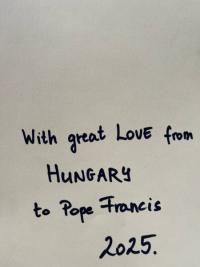 With great LOVE from
HUNGARY
to Pope Francis
2025.